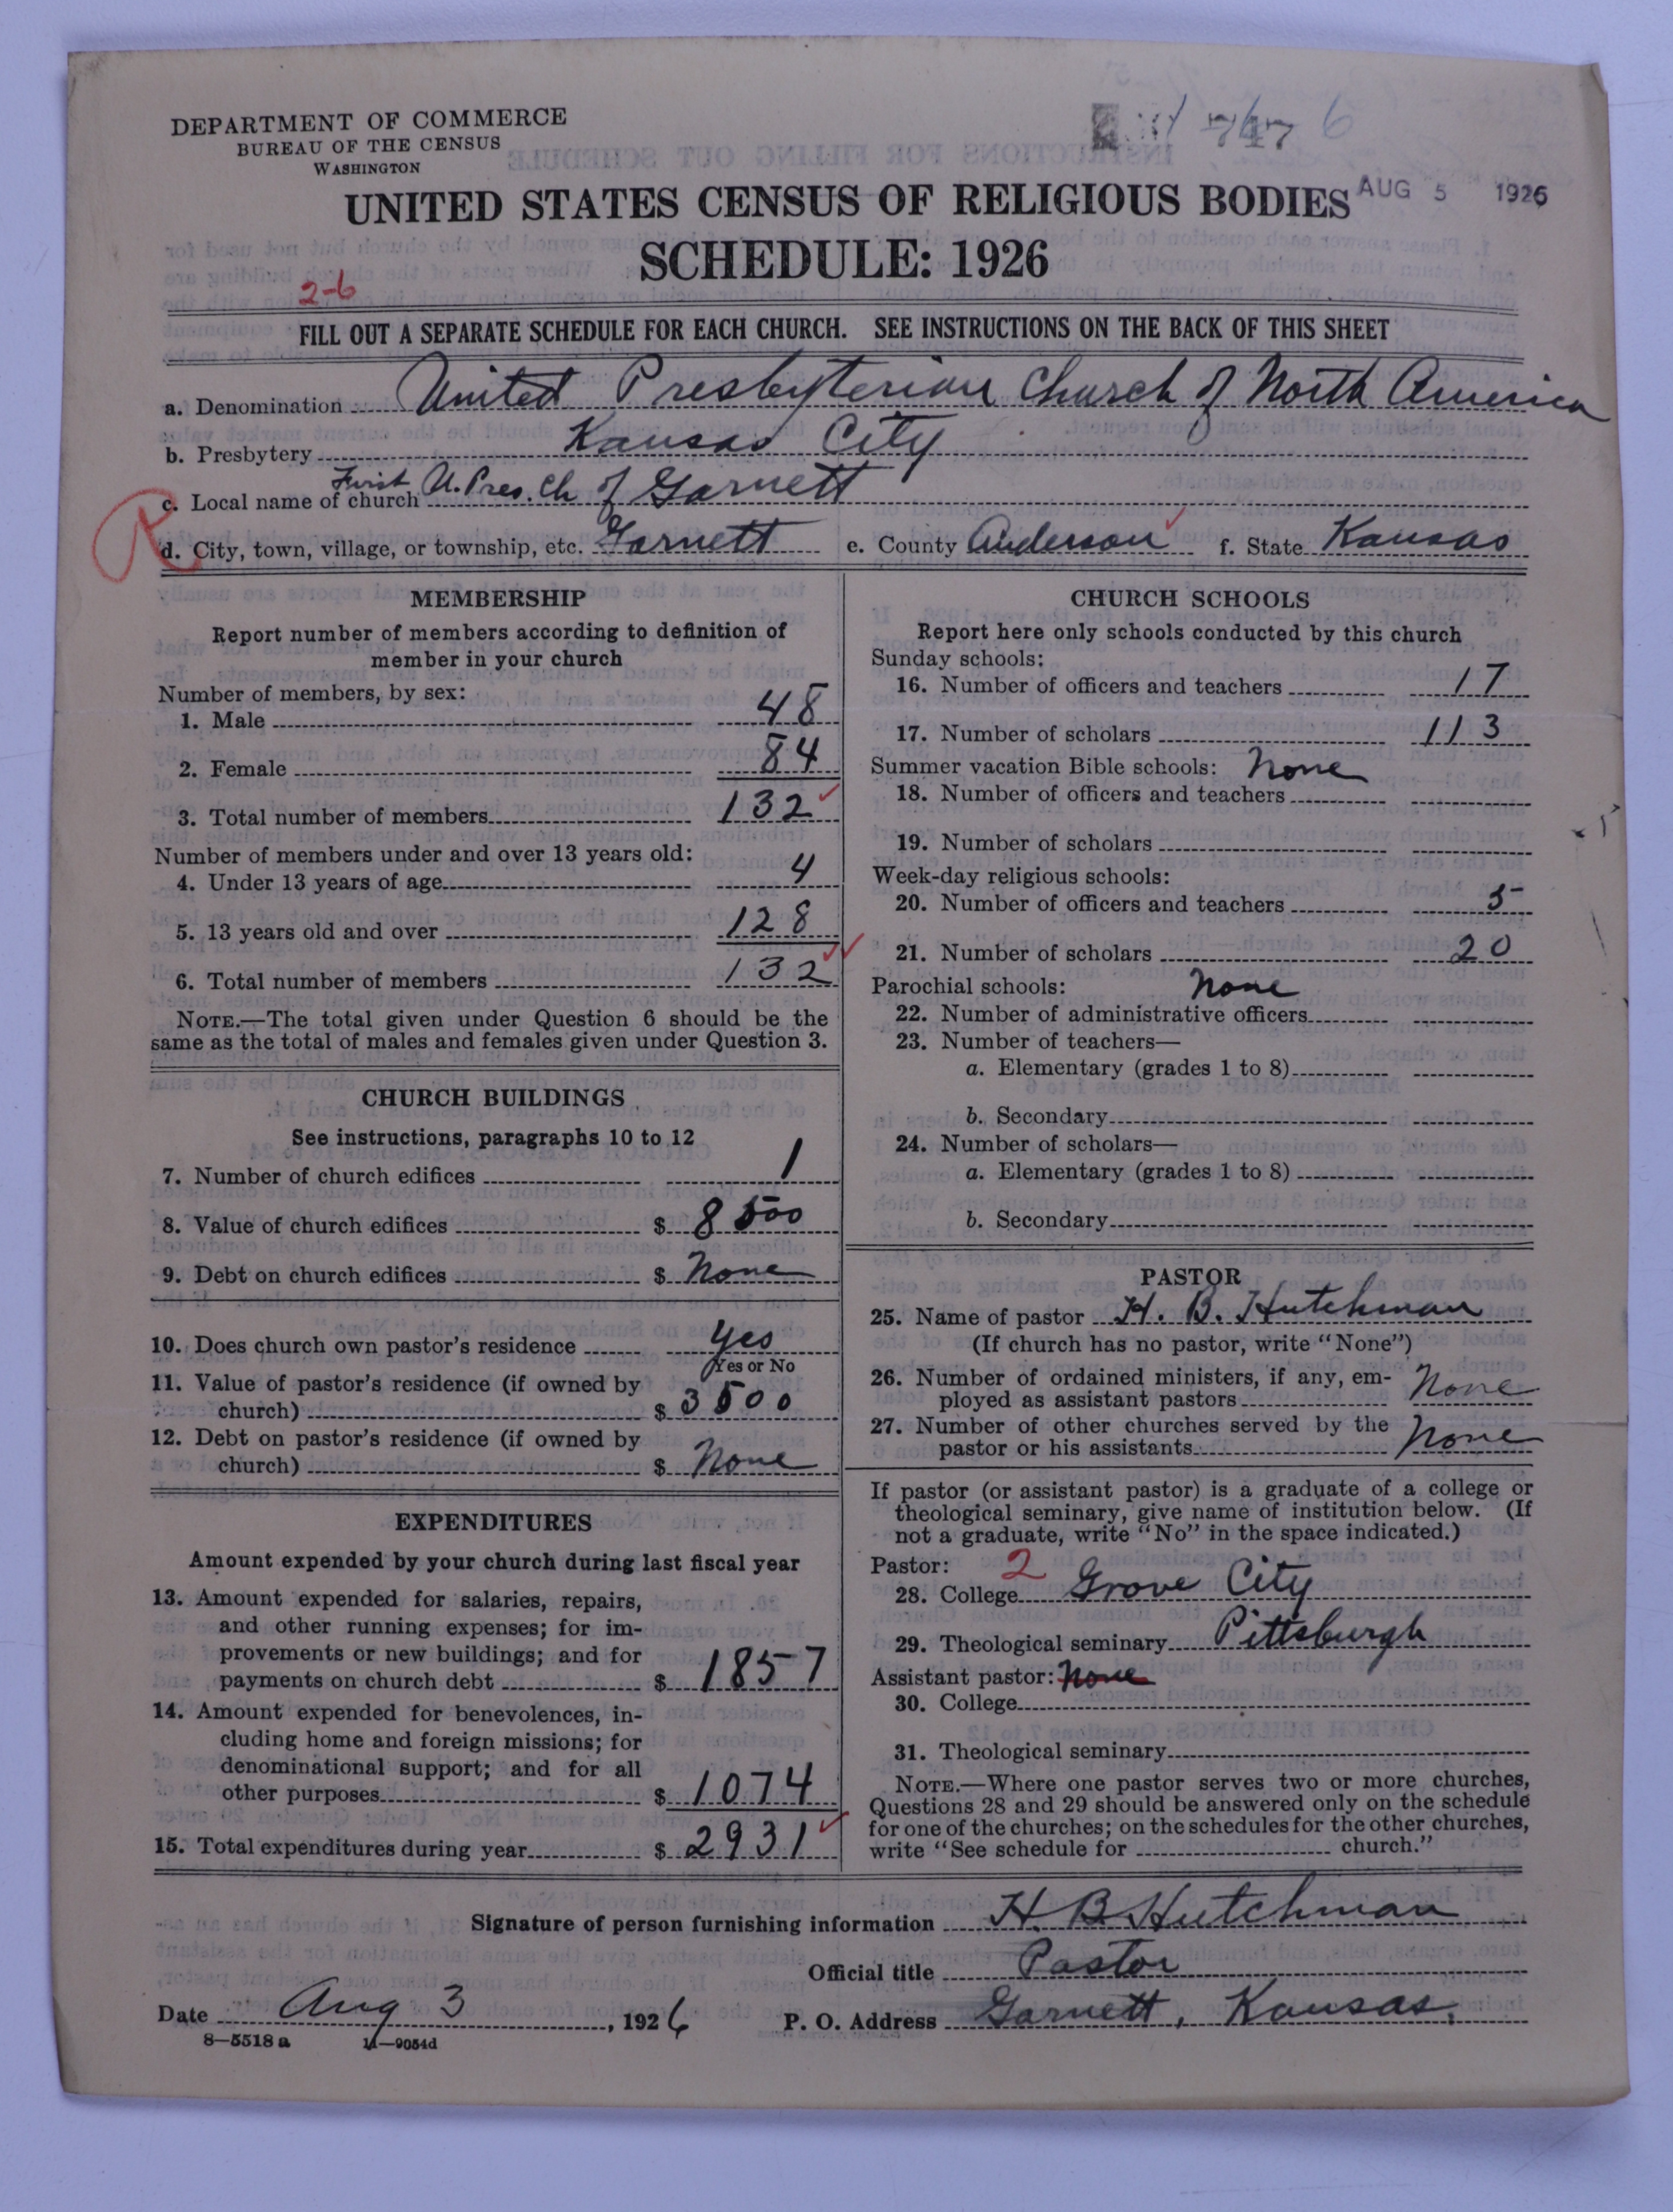 DEPARTMENT OF COMMERCE
BUREAU OF THE CENSUS
WASHINGTON
UNITED STATES CENSUS OF RELIGIOUS BODIES
AUG 5 1926
SCHEDULE: 1926
2-6
FILL OUT A SEPARATE SCHEDULE FOR EACH CHURCH. SEE INSTRUCTIONS ON THE BACK OF THIS SHEET
a. Denomination United Presbyterian Church of North America
b. Presbytery Kansas City
c. Local name of church First U. Pres. Ch of Garnett
d. City, town, village, or township, etc. Garnett e. County Anderson f. State Kansas
MEMBERSHIP
Report number of members according to definition of
member in your church
Number of members, by sex:
1. Male 48
2. Female 84
3. Total number of members 132
Number of members under and over 13 years old:
4. Under 13 years of age 4
5. 13 years old and over 128
6. Total number of members 132
NOTE.—The total given under Question 6 should be the
same as the total of males and females given under Question 3.
CHURCH BUILDINGS
See instructions, paragraphs 10 to 12
7. Number of church edifices 1
8. Value of church edifices $ 8500
9. Debt on church edifices $ None
10. Does church own pastor's residence yes
Yes or No
11. Value of pastor's residence (if owned by
church) $ 3500
12. Debt on pastor's residence (if owned by
church) $ None
EXPENDITURES
Amount expended by your church during last fiscal year
13. Amount expended for salaries, repairs,
and other running expenses; for im-
provements or new buildings; and for
payments on church debt $ 1857
14. Amount expended for benevolences, in-
cluding home and foreign missions; for
denominational support; and for all
other purposes $ 1074
15. Total expenditures during year $ 2931
CHURCH SCHOOLS
Report here only schools conducted by this church
Sunday schools:
16. Number of officers and teachers 17
17. Number of scholars 113
Summer vacation Bible schools: None
18. Number of officers and teachers
19. Number of scholars
Week-day religious schools:
20. Number of officers and teachers 5
21. Number of scholars 20
Parochial schools: None
22. Number of administrative officers
23. Number of teachers—
a. Elementary (grades 1 to 8)
b. Secondary
24. Number of scholars—
a. Elementary (grades 1 to 8)
b. Secondary
PASTOR
25. Name of pastor H. B. Hutchman
(If church has no pastor, write "None")
26. Number of ordained ministers, if any, em-
ployed as assistant pastors None
27. Number of other churches served by the
pastor or his assistants None
If pastor (or assistant pastor) is a graduate of a college or
theological seminary, give name of institution below. (If
not a graduate, write "No" in the space indicated.)
Pastor: 2
28. College Grove City
29. Theological seminary Pittsburgh
Assistant pastor: None
30. College
31. Theological seminary
NOTE.—Where one pastor serves two or more churches,
Questions 28 and 29 should be answered only on the schedule
for one of the churches; on the schedules for the other churches,
write "See schedule for church."
Signature of person furnishing information H. B Hutchman
Official title Pastor
Date Aug 3, 1926 P. O. Address Garnett, Kansas.
8—5518a 11—9054d